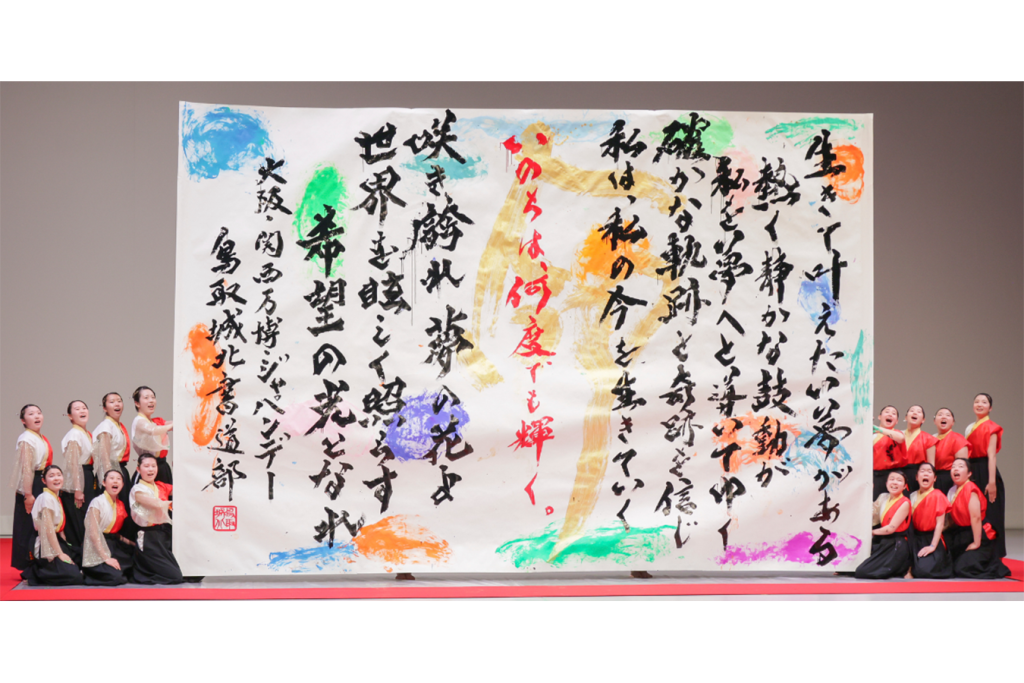 生きて叶えたい夢がある
熱く静かな鼓動が
私を夢へと導いてゆく
確かな軌跡と奇跡を信じ
私は、私の今を生きていく
いのちは、何度でも輝く。
咲き誇れ夢の花よ
世界を眩しく照らす
希望の光となれ
大阪・関西万博ジャパンデー
鳥取城北書道部